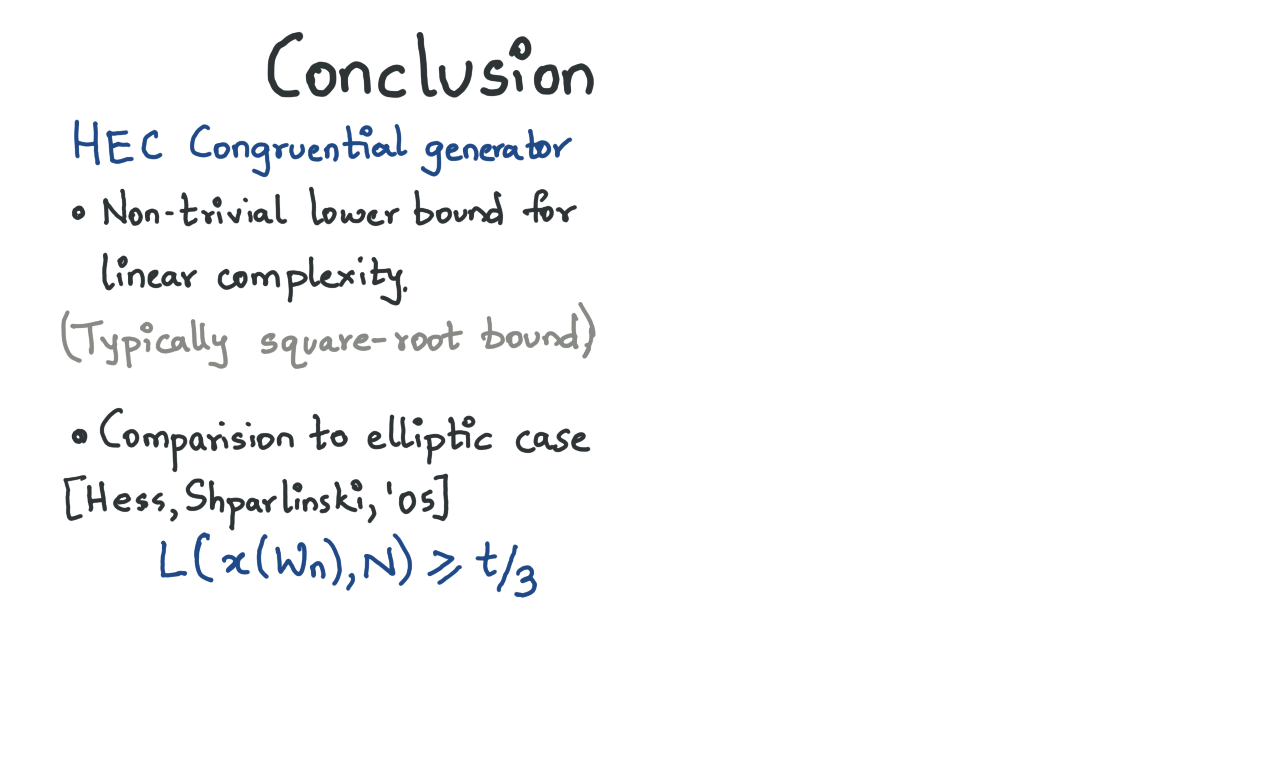 Conclusion
HEC Congruential generator
• Non-trivial lower bound for
linear complexity.
(Typically square-root bound)
• Comparision to elliptic case
[Hess, Shparlinski, '05]
L(x(Wn), N) ⩾ t/3